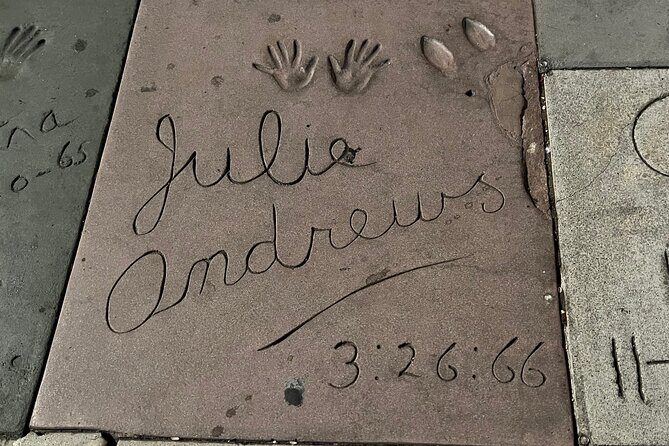 Julie
Andrews
3:26:66
na
0-65
11-